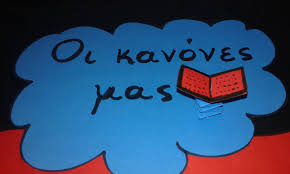 Οι κανόνες
μας